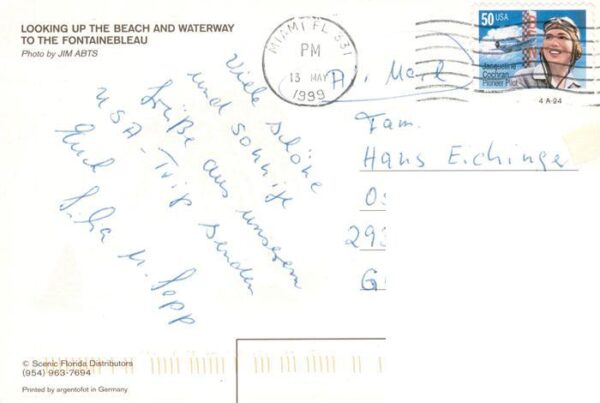 LOOKING UP THE BEACH AND WATERWAY
TO THE FONTAINEBLEAU
Photo by JIM ABTS
MIAMI FL 331
PM
13 MAY
1999
50 USA
Jacqueline
Cochran
Pioneer Pilot
4-A-24
Viele schöne
und sonnige
Grüße aus unserem
USA-Trip senden
Euch
u. Sepp
Fam.
Hans Eichinger
293
G
© Scenic Florida Distributors
(954) 963-7694
Printed by argentofot in Germany